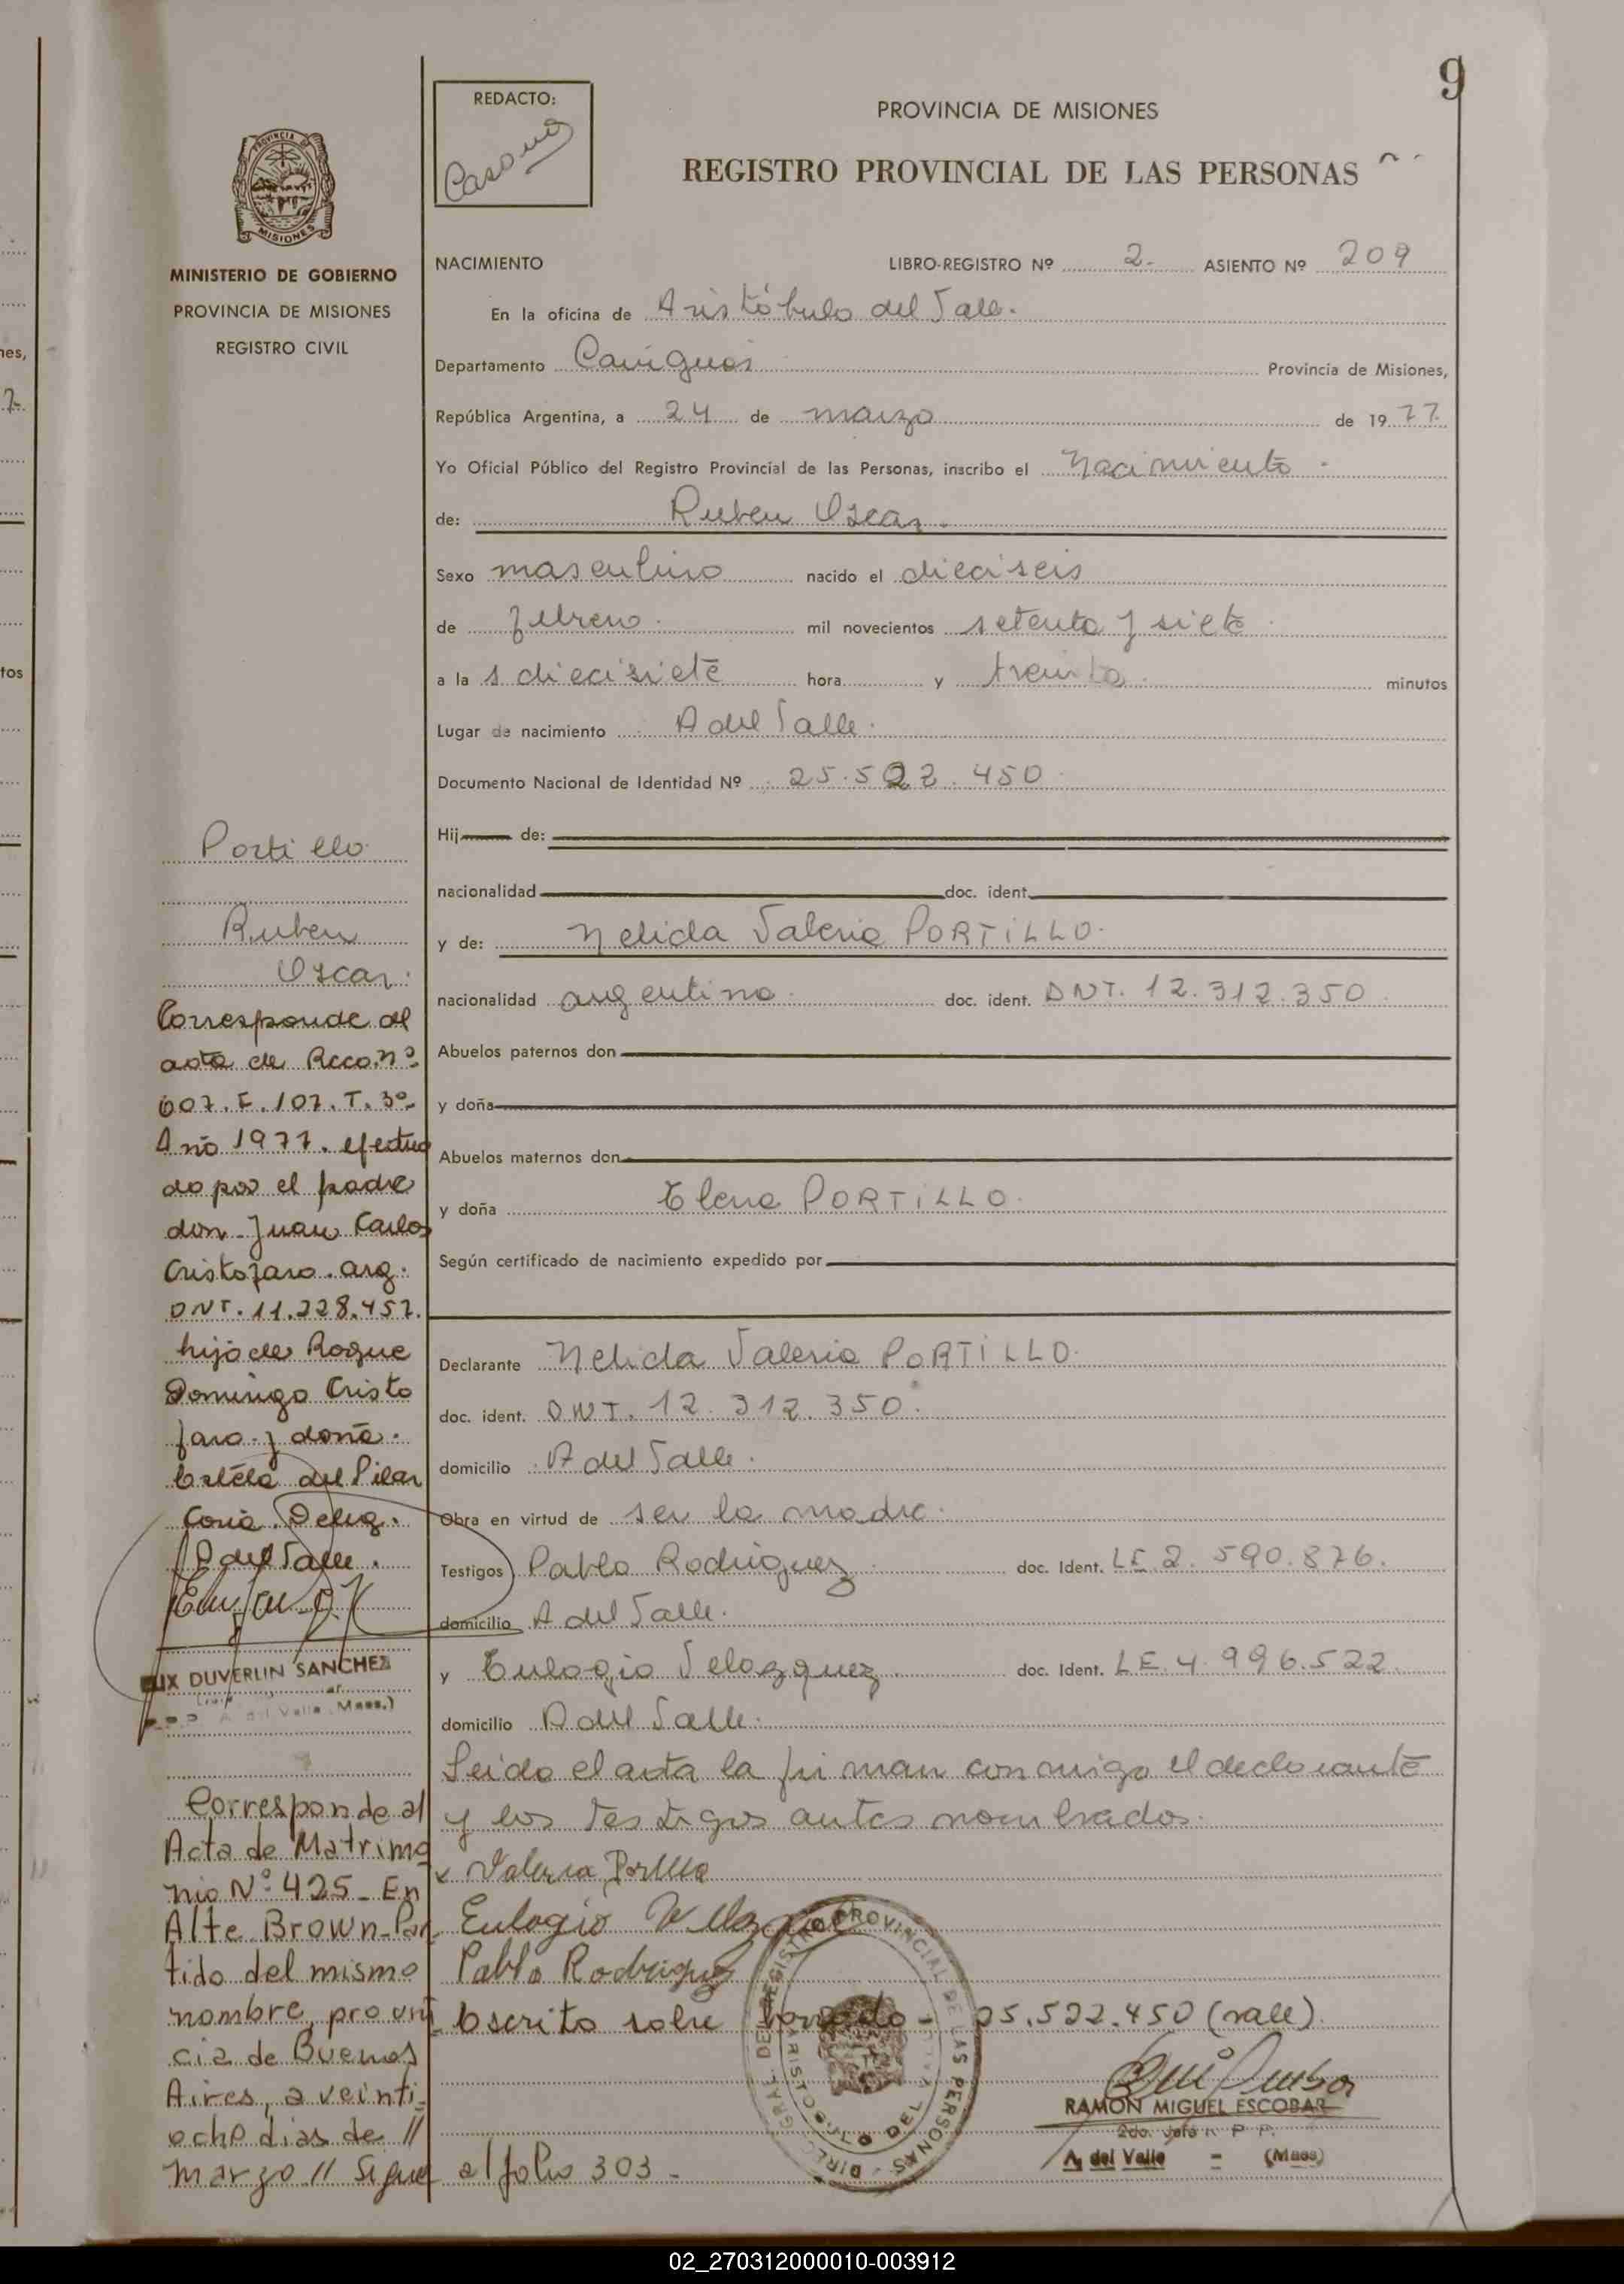 9
REDACTO:
PROVINCIA DE MISIONES
REGISTRO PROVINCIAL DE LAS PERSONAS
PROVINCIA
MISIONES
MINISTERIO DE GOBIERNO
PROVINCIA DE MISIONES
REGISTRO CIVIL
NACIMIENTO LIBRO-REGISTRO Nº 2 - ASIENTO Nº 209
En la oficina de Aristóbulo del Valle.
Departamento Cainguas Provincia de Misiones,
República Argentina, a 24 de marzo de 1977
Yo Oficial Público del Registro Provincial de las Personas, inscribo el Nacimiento -
de: Ruben Oscar.
Sexo masculino nacido el dieciseis
de febrero. mil novecientos setenta y siete
a la s diecisiete hora y treinta minutos
Lugar de nacimiento A del Valle.
Documento Nacional de Identidad Nº 25.522.450
Hij de:
nacionalidad doc. ident.
y de: Nelida Valeria PORTILLO.
nacionalidad argentina doc. ident. DNI. 12.312.350
Abuelos paternos don
y doña
Abuelos maternos don
y doña Elena PORTILLO.
Según certificado de nacimiento expedido por
Declarante Nelida Valeria PORTILLO.
doc. ident. DNI. 12.312.350.
domicilio A del Valle.
Obra en virtud de ser la madre.
Testigos Pablo Rodriguez doc. Ident. LE 2.590.876.
domicilio A del Valle.
y Eulogio Velazquez doc. Ident. LE. 4.996.522
domicilio A del Valle.
Leido el acta la firman conmigo el declarante
y los testigos antes nombrados.
x Valeria Portillo
Eulogio Velazquez
Pablo Rodriguez
Escrito sobre borrado - 25.522.450 (vale).
RAMON MIGUEL ESCOBAR
2do. Jefe R P P.
A. del Valle - (Mnes)
Portillo
Ruben
Oscar.
Corresponde al
acta de Reco. nº
607. F. 107. T. 3º
Año 1977. efectua
do por el padre
don Juan Carlos
Cristofaro. arg.
DNI. 11.228.457.
hijo de Roque
Domingo Cristo
faro y doña.
Estela del Pilar
Coria. Deleg.
A del Valle.
DUVERLIN SANCHEZ
Corresponde al
Acta de Matrimo
nio Nº 425 - En
Alte Brown - Par
tido del mismo
nombre, provin
cia de Buenos
Aires, a veinti
ocho dias de //
marzo // Sigue al folio 303 -
02_270312000010-003912